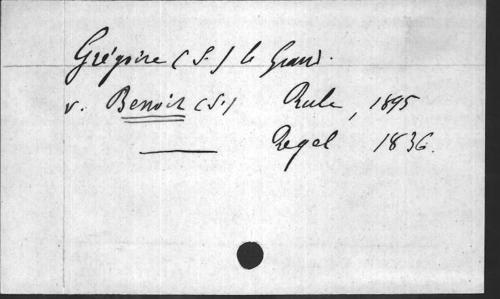 Grégoire (St) le Grand.
v. Benoit (St) Rule, 1895
Regel 1836.